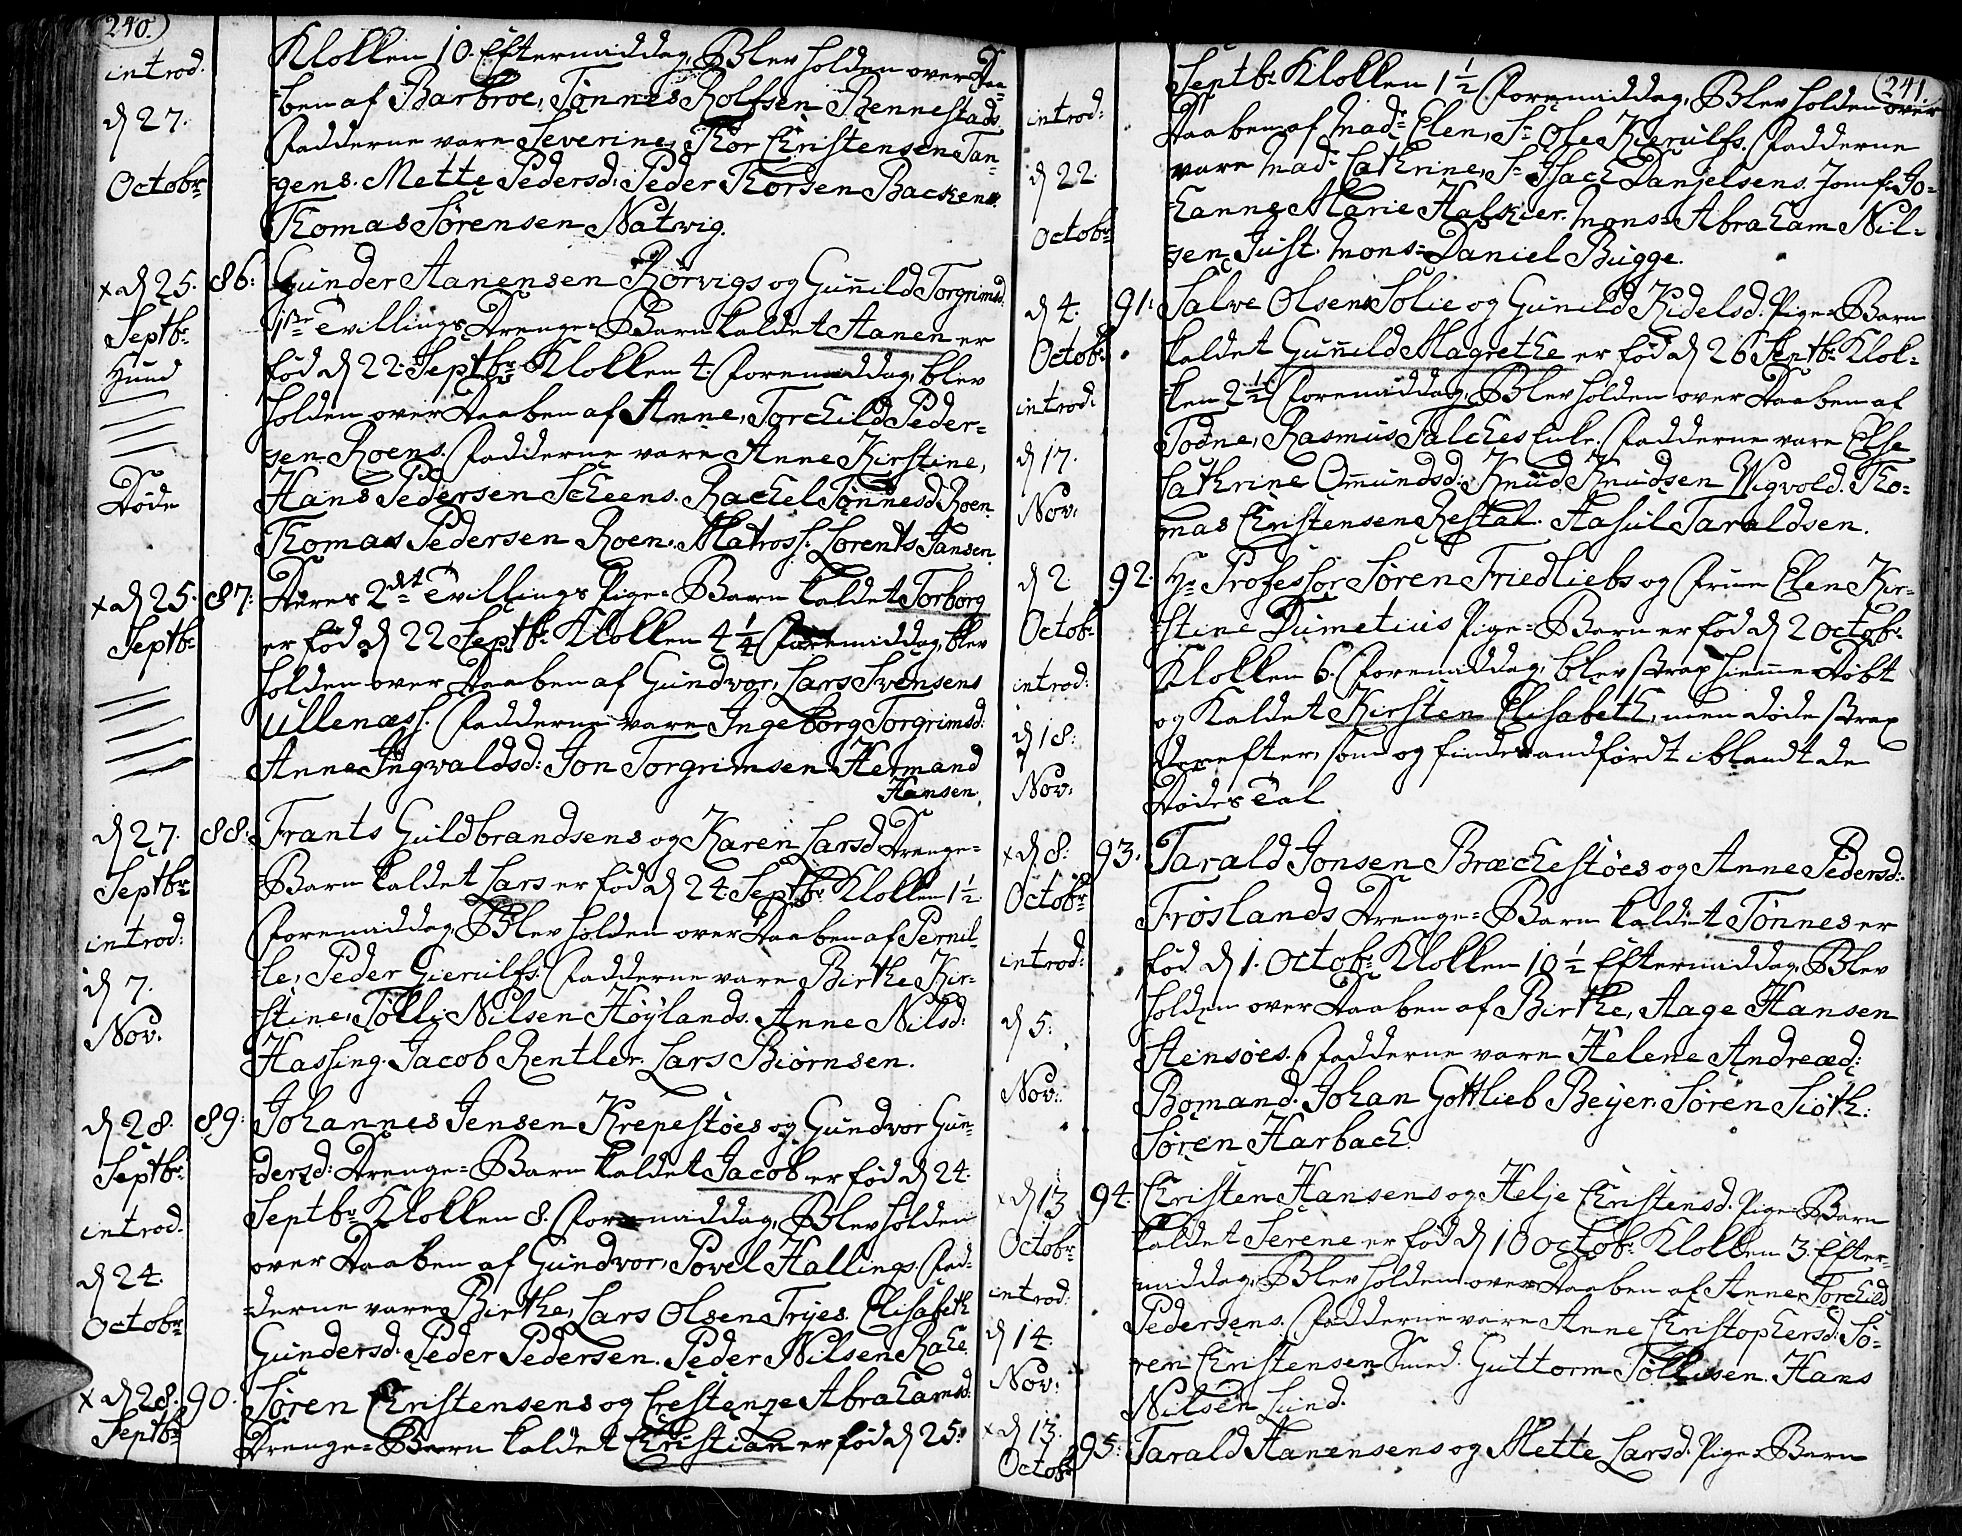 240.
introd.
d 27.
Octobr
Klokken 10. Eftermiddag, Blev holden over Daa-
ben af Barbroe, Tønnes Rolfsen Rennestads.
Fadderne vare Severine, Thor Christensen Tan-
gens. Mette Pedersd: Peder Thorsen Backene.
Thomas Sørensen Natvig.
x d 25. Septbr 86:
Hund
Døde
Gunder Aanensen Rørvigs og Gunnild Torgrimsd.
1ste Tvillings Drenge-Barn kaldet Aanen er
fød d 22. Septbr Klokken 4. Foremiddag, blev
holden over Daaben af Anne, Torchild Peder-
sen Roens. Fadderne vare Anne Kirstine,
Hans Pedersen Scheens. Rachel Tønnesd. Roen.
Thomas Pedersen Roen. Matross. Lorents Jansen.
x d 25. Septbr 87:
Deres 2det Tvillings Pige-Barn kaldet Torborg
er fød d 22 Septbr Klokken 4 1/4 Foremiddag, blev
holden over Daaben af Gundvor, Lars Svensens
Ullenæss. Fadderne vare Ingeborg Torgrimsd:
Anne Ingvaldsd: Jon Torgrimsen. Hermand
Hansen.
d 27. Septbr 88:
introd:
d 7.
Nov.
Frants Guldbrandsens og Karen Larsd. Drenge-
Barn kaldet Lars er fød d 24. Septbr Klokken 1 1/2
Foremiddag, Blev holden over Daaben af Pernil-
le, Peder Gierulfs. Fadderne vare Birthe Kir-
stine, Tølli Nilsen Høylands. Anne Nilsd:
Hassing. Jacob Rentler. Lars Biørnsen.
d 28. Septbr 89:
introd.
d 24.
Octobr
Johannes Jensen Krepestøes og Gundvor Gun-
dersd: Drenge-Barn kaldet Jacob er fød d 24.
Septbr Klokken 8. Foremiddag, Blev holden
over Daaben af Gundvor, Povel Hallings. Fad-
derne vare Birthe, Lars Olsen Tryes. Elisabeth
Gundersd: Peder Pedersen. Peder Nilsen
x d 28. Septbr 90.
Søren Christensens og Abrahamsd.
Drenge-Barn kaldet Christian er fød d 25:
241.
introd:
d 22.
Octobr
Septbr Klokken 1 1/2 Foremiddag, Blev holden over
Daaben af Mad: Elen, Sr Ole Kierulfs. Fadderne
vare Mad: Cathrine, Sr Isach Danjelsens. Jomf: Jo-
hanne Marie Halskier. Mons: Abraham Nil-
sen Just. Mons: Daniel Bugge.
d 4. Octobr 91:
introd:
d 17.
Nov:
Salve Olsens Solie og Gunild Kidelsd. Pige-Barn
kaldet Gunnild Magrethe er fød d 26 Septbr Klok-
ken 2 1/2 Foremiddag, Blev holden over Daaben af
Todne, Rasmus Falches Enke. Fadderne vare Else
Cathrine Omundsd: Knud Knudsen Wigvold. Tho-
mas Christensen Restal. Aasul Taraldsen.
d 2. Octobr 92.
introd:
d 18:
Nov:
Hr Professor Søren Friedliebs og Frue Elen Kir-
stine Dumetius Pige-Barn er fød d 2 Octobr
Klokken 6. Foremiddag, blev strax hiemme døbt
og kaldet Kirsten Elisabeth, men døde strax
derefter, som og findes andførdt iblandt de
Dødes Tal.
x d 8: Octobr 93.
introd:
d 5:
Nov:
Tarald Jonsen Bræchestøes og Anne Pedersd:
Frøslands Drenge-Barn kaldet Tønnes er
fød d 1. Octobr Klokken 10 1/2 Eftermiddag, Blev
holden over Daaben af Birthe, Aage Hansen
Stensøes. Fadderne vare Helene Andreæd:
Bomand. Johan Gottlieb Beyer. Søren Siøth:
Søren Harbach.
x d 13 Octobr 94.
introd:
d 14.
Nov:
Christen Hansens og Helje Christensd. Pige-Barn
kaldet Serene er fød d 10 Octobr Klokken 3. Efter-
middag, Blev holden over Daaben af Anne, Torchild
Pedersens. Fadderne vare Anne Christophersd: Sø-
ren Christensen Smed. Guttorm Tøllisen. Hans
Nilsen Lund.
x d 13. Octobr 95:
Tarald Aanensens og Mette Larsd. Pige-Barn